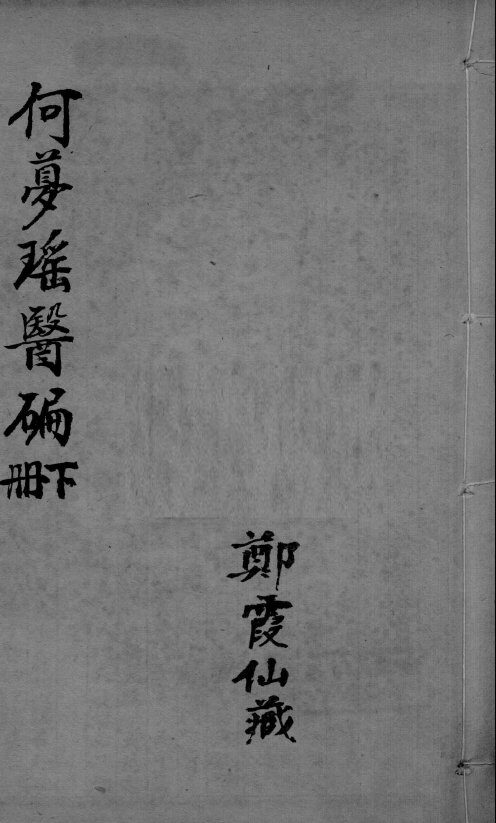 何夢瑶醫碥下冊
鄭霞仙藏